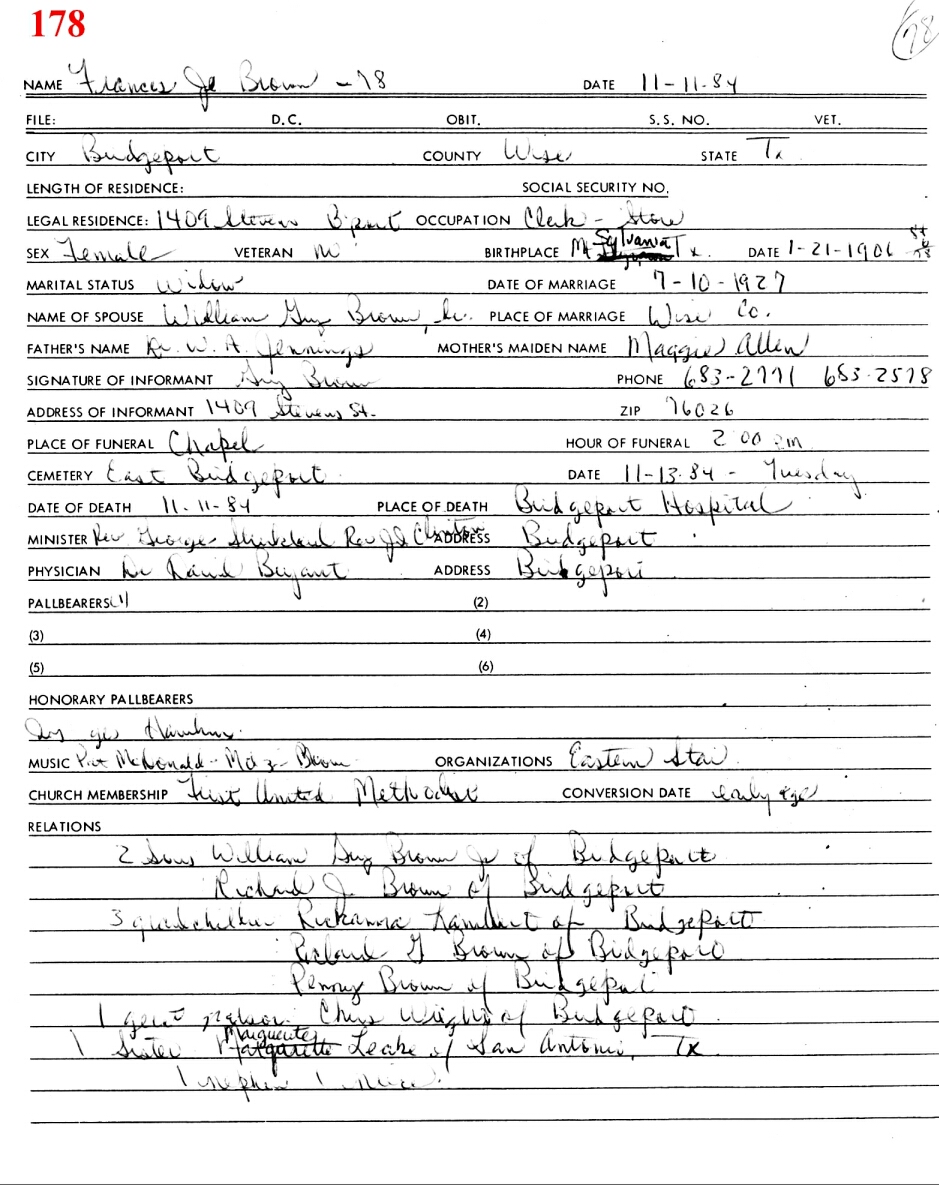 178
78
NAME Frances Jo Brown - 78 DATE 11-11-84
FILE: D.C. OBIT. S.S. NO. VET.
CITY Bridgeport COUNTY Wise STATE Tx
LENGTH OF RESIDENCE: SOCIAL SECURITY NO.
LEGAL RESIDENCE: 1409 Stevens B'port OCCUPATION Clerk - Store
SEX Female VETERAN no BIRTHPLACE Mt Sylvania Tx. DATE 1-21-1906
MARITAL STATUS Widow DATE OF MARRIAGE 7-10-1927
NAME OF SPOUSE William Guy Brown, Sr. PLACE OF MARRIAGE Wise Co.
FATHER'S NAME Dr. W. A. Jennings MOTHER'S MAIDEN NAME Maggie Allen
SIGNATURE OF INFORMANT Guy Brown PHONE 683-2771 683-2578
ADDRESS OF INFORMANT 1409 Stevens St. ZIP 76026
PLACE OF FUNERAL Chapel HOUR OF FUNERAL 2:00 pm
CEMETERY East Bridgeport DATE 11-13-84 - Tuesday
DATE OF DEATH 11-11-84 PLACE OF DEATH Bridgeport Hospital
MINISTER Rev George Strickland Rev J.D. Clinton ADDRESS Bridgeport
PHYSICIAN Dr David Bryant ADDRESS Bridgeport
PALLBEARERS (1) (2)
(3) (4)
(5) (6)
HONORARY PALLBEARERS
MUSIC Pat McDonald - Brown ORGANIZATIONS Eastern Star
CHURCH MEMBERSHIP First United Methodist CONVERSION DATE early age
RELATIONS
2 Sons William Guy Brown Jr of Bridgeport
Richard J. Brown of Bridgeport
3 grandchildren Rickanna Lambert of Bridgeport
Richard G Brown of Bridgeport
Penny Brown of Bridgeport
1 great nephew Chris Wright of Bridgeport
1 Sister Marguerite Leake of San Antonio, Tx
1 nephew 1 niece